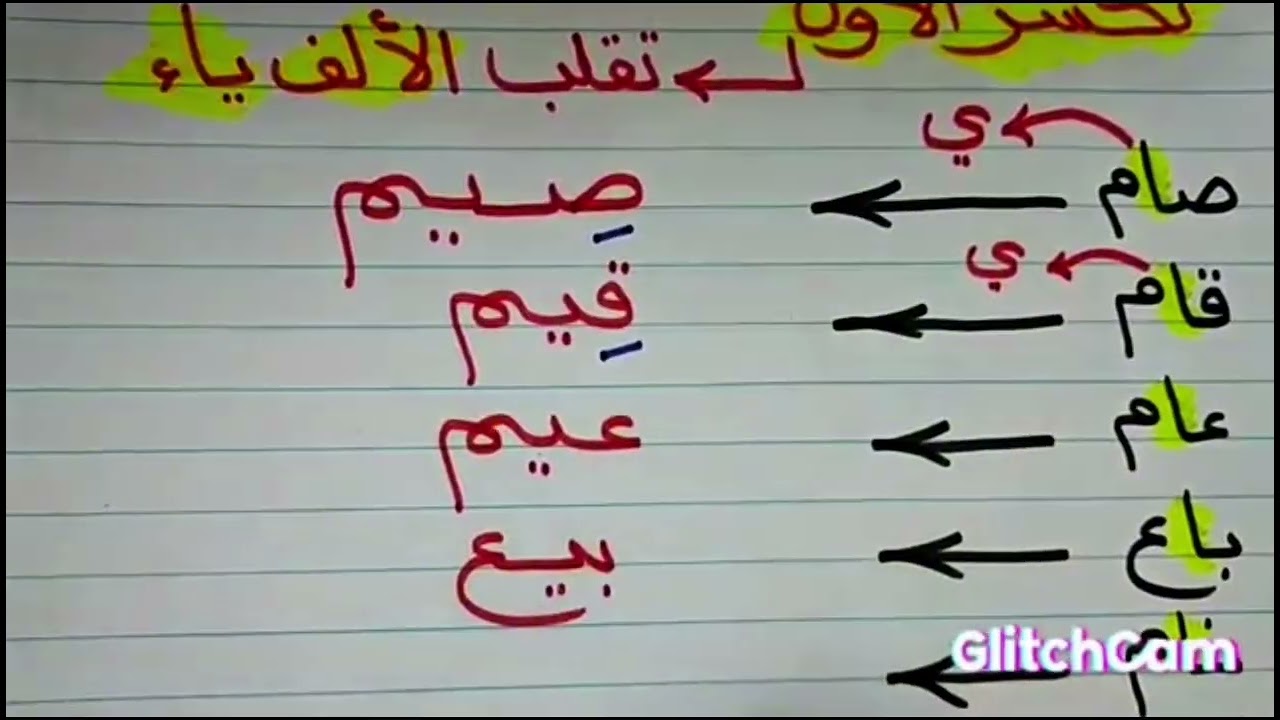 نكسر الأول
تقلب الألف ياء
ي
صام صِيم
ي
قام قِيم
عام عيم
باع بيع
نام
GlitchCam